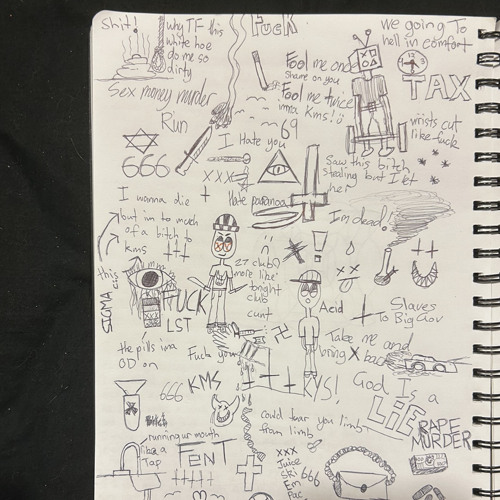 Shit!
why TF this
white hoe
do me so
dirty
FUCK
we going To
hell in comfort
Fool me once
Shame on you
Fool me twice
imma Kms!
TAX
Sex money murder
Run
69
I Hate you
wrists cut
like fuck
666
XXX
Saw this bitch
stealing but I let
her
I wanna die
but im to much
of a bitch to
kms
Hate paranoa
Im dead!
27 club?
more like
tonight
club
cunt
this
SIGMA
FUCK
LST
Acid
Slaves
To Big Gov
the pills ima
OD on
Fuck you
Take me and
bring X back
666
KMS
KYS!
God Is a
LiE
RAPE
MURDER
could tear you limb
from limb
running ur mouth
like a
Tap
FENT
XXX
Juice
Ski
666
Em
Pac